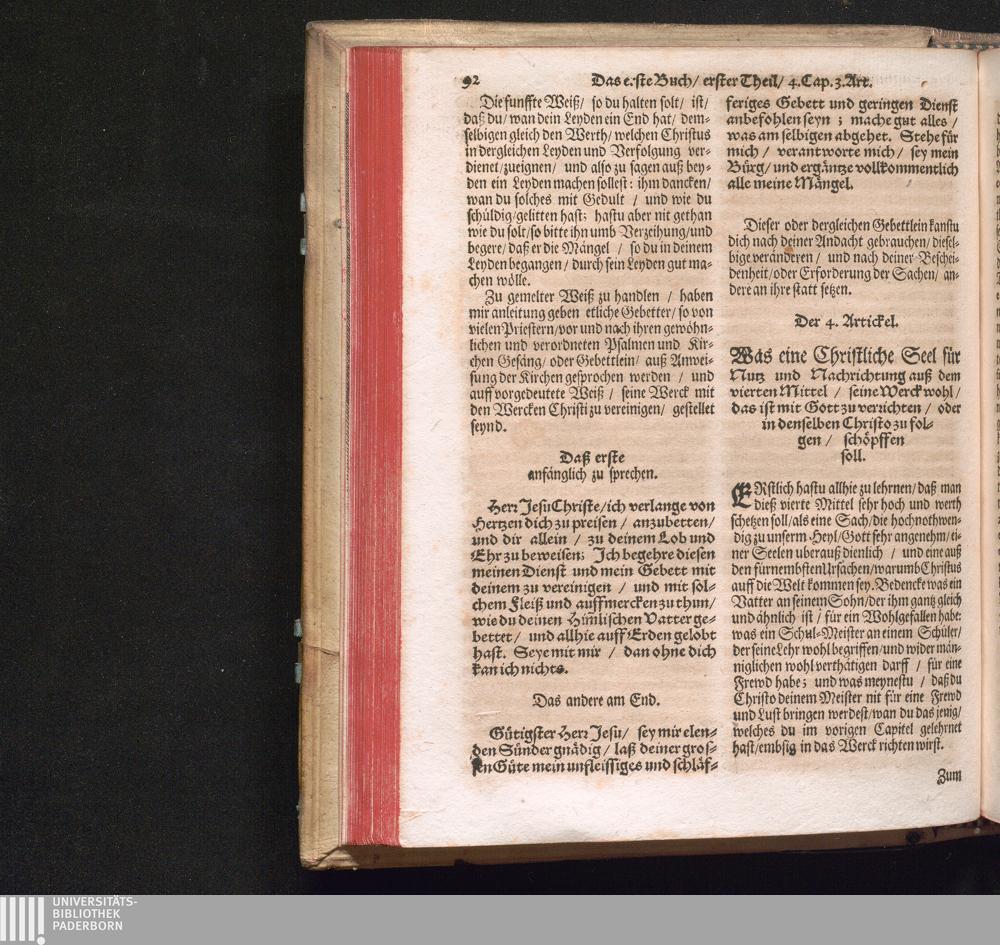 92
Das erste Buch/ erster Theil/ 4. Cap. 3. Art.
Die funffte Weiß/ so du halten solt/ ist/
daß du/ wan dein Leyden ein End hat/ dem-
selbigen gleich den Werth/ welchen Christus
in dergleichen Leyden und Verfolgung ver-
dienet/zueignen/ und also zu sagen auß bey-
den ein Leyden machen sollest: ihm dancken/
wan du solches mit Gedult / und wie du
schuldig/gelitten hast; hastu aber nit gethan
wie du solt/so bitte ihn umb Verzeihung/und
begere/ daß er die Mängel / so du in deinem
Leyden begangen/ durch sein Leyden gut ma-
chen wölle.
Zu gemelter Weiß zu handlen / haben
mir anleitung geben etliche Gebetter/ so von
vielen Priestern/vor und nach ihren gewöhn-
lichen und verordneten Psalmen und Kir-
chen Gesäng/ oder Gebettlein/ auß Anwei-
sung der Kirchen gesprochen werden / und
auff vorgedeutete Weiß / seine Werck mit
den Wercken Christi zu vereinigen/ gestellet
seynd.
Daß erste
anfänglich zu sprechen.
Herr Jesu Christe/ich verlange von
Hertzen dich zu preisen / anzubetten/
und dir allein / zu deinem Lob und
Ehr zu beweisen; Ich begehre diesen
meinen Dienst und mein Gebett mit
deinem zu vereinigen / und mit sol-
chem Fleiß und auffmercken zu thun/
wie du deinen Him̄lischen Vatter ge-
bettet / und allhie auff Erden gelobt
hast. Seye mit mir / dan ohne dich
kan ich nichts.
Das andere am End.
Gütigster Herr Jesu/ sey mir elen-
den Sünder gnädig / laß deiner gros-
sen Güte mein unfleissiges und schläf-
feriges Gebett und geringen Dienst
anbefohlen seyn ; mache gut alles /
was am selbigen abgehet. Stehe für
mich / verantworte mich / sey mein
Bürg/ und ergäntze vollkommentlich
alle meine Mängel.
Dieser oder dergleichen Gebettlein kanstu
dich nach deiner Andacht gebrauchen/ diesel-
bige veränderen / und nach deiner Beschei-
denheit/oder Erforderung der Sachen/ an-
dere an ihre statt setzen.
Der 4. Artickel.
Was eine Christliche Seel für
Nutz und Nachrichtung auß dem
vierten Mittel / seine Werck wohl/
das ist mit Gott zu verrichten / oder
in denselben Christo zu fol-
gen / schöpffen
soll.
ERstlich hastu allhie zu lehrnen/ daß man
dieß vierte Mittel sehr hoch und werth
schetzen soll/als eine Sach/die hochnothwen-
dig zu unserm Heyl/Gott sehr angenehm/ei-
ner Seelen uberauß dienlich / und eine auß
den fürnembsten Ursachen/warumb Christus
auff die Welt kommen sey. Bedencke was ein
Vatter an seinem Sohn/der ihm gantz gleich
und ähnlich ist / für ein Wohlgefallen habe:
was ein Schul-Meister an einem Schüler/
der seine Lehr wohl begriffen/und wider män-
niglichen wohl verthätigen darff / für eine
Frewd habe; und was meynestu / daß du
Christo deinem Meister nit für eine Frewd
und Lust bringen werdest/wan du das jenig/
welches du im vorigen Capitel gelehrnet
hast/embsig in das Werck richten wirst.
Zum
UNIVERSITÄTS-
BIBLIOTHEK
PADERBORN